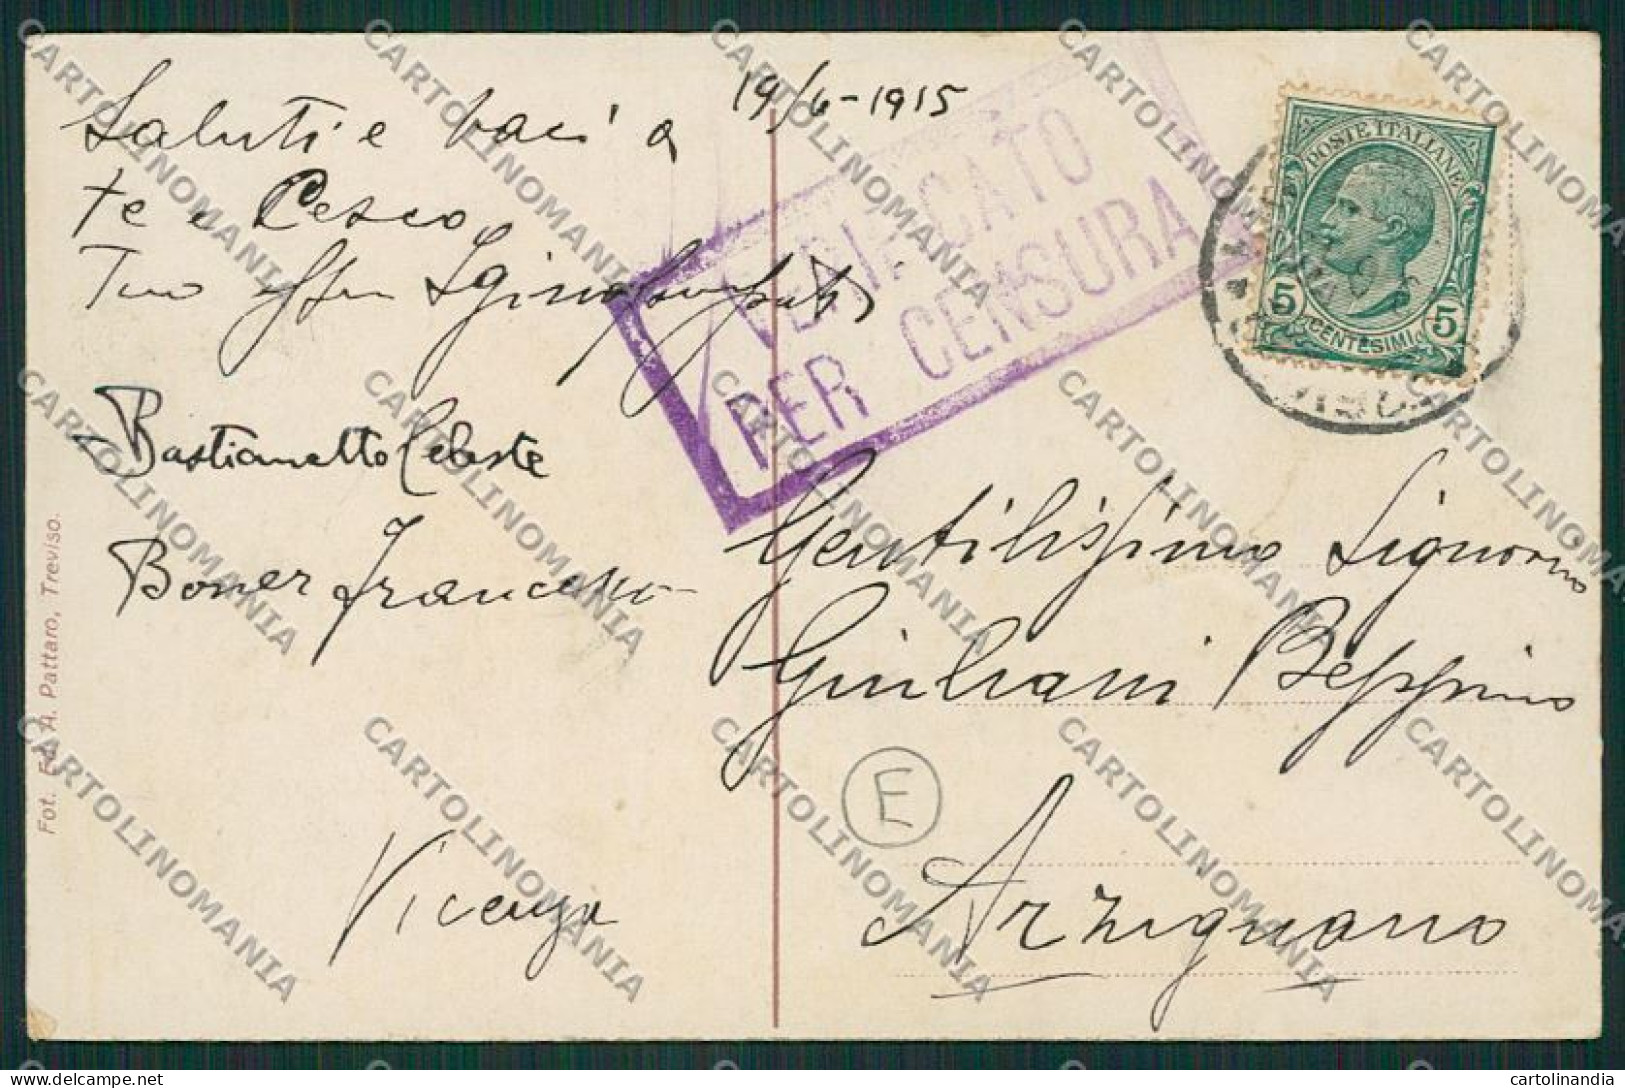 19/6-1915
Saluti e baci a
te e Cesco
Tuo
Bastianetto Celeste
Boner Francesco
Vicenza
VERIFICATO
PER CENSURA
POSTE ITALIANE
5 CENTESIMI 5
Gentilissimo Signorino
Giuliani Beppino
E
Arzignano
Fot. Ed. A. Pattaro, Treviso.
CARTOLINOMANIA
cartolinandia